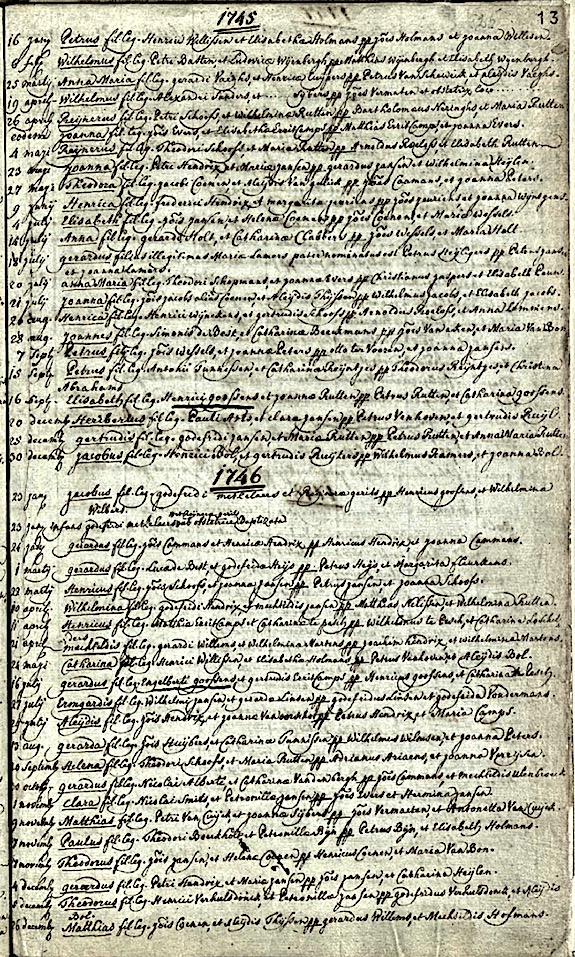 1745
13
16 janij Petrus fil: leg: Henrici Willissen et Elisabetha Holmans pp Jois Holmans et Joanna Willisen.
9 feb Wilhelmus fil: leg: Petri Batten et Ludovica Wijenbergh pp Matthias Wijnbergh et Elisabeth Wijenburgh.
25 martij Anna Maria fil: leg: gerardi Vaeghs, et Henrica Cuijpers pp Petrus Van Schaijick et aleijdis Vaeghs.
19 aprilis Wilhelmus fil: leg: Alexandri Sanders, et Sijbers pp Jois Vermaten et obstetrix loco
26 aprilis Reijnerus fil: leg: Petri Schoofs, et Wilhelmina Rutten pp Bartholomaus Neringhs et Maria Rutten
eodem Joanna fil: leg: Jois Evers, et Elisabetha Gerits Camps pp Matthias Gerits Camps, et Joanna Evers.
4 maii Reijnerius fil: leg: Theodori Schoofs, et Maria Rutten pp Arnoldus Roelofs et Elisabeth Rutten
23 maii Joanna fil: leg: Petri Hendrix et Maria Jansen pp gerardus Jansen, et Wilhelmina Heijlen.
27 maii Theodora fil: leg: Jacobi Coenen, et Aleijdis Van pp Jois Coamans, et Joanna Peters.
9 junij Henrica fil: leg: frederici Hendrix, et margarita pp Jois et Joanna Wijnsgens.
4 julij Elisabeth fil: leg: Jois Jansen, et Helena Coenen pp Jois Coenen, et Maria Wessels.
16 julij Anna fil: leg: gerardi Holt, et Catharina Clabbers pp Jois Wessels, et Maria Holt
18 julij gerardus filius illegitimus Maria Lamers pater nominatus est Petrus Heijligers pp Petrus Janse,
et Joanna Lamers.
20 julij anna Maria fil: leg: Theodori Schopmans, et Joanna Evers pp Christianus Jaspers et Elisabeth
21 julij Joanna fil: leg: Jois Jacobs alias Coenen, et Aleijdis Thijssen pp Wilhelmus Jacobs, et Elisabeth Jacobs.
20 aug. Henrica fil: leg: Henrici Wijnekers, et gertrudis Schoofs pp Arnoldus Roelofs, et Anna
28 aug. Joannes fil: leg: Simonis de Best, et Catharina Beeckmans pp Jois Van aken, et Maria Van Bon
7 Septb Petrus fil: leg: Jois Wessels, et Joanna Peters pp otto ter Vooren, et Joanna Jansen.
15 Septb Petrus fil: leg: Antonii Tunnissen et Catharina Reijntjes pp Theodorus Reijntjes, et Christina
Abrahams
16 Septb Elisabeth fil: leg: Henrici goossens et Joanna Rutten pp Petrus Rutten, et Catharina goossens.
20 decemb Heribertus fil: leg: Pauli Arts, et clara Jansen pp Petrus Vanhoven, et gertrudis
25 decemb gertrudis fil: leg: godefridi Jansen, et Maria Rutten pp Petrus Rutten, et Anna Maria Rutten
30 decemb Jacobus fil: leg: Henrici Bol, et gertrudis Ruijters pp Wilhelmus Hamers, et Joanna Bol.
1746
23 janij Jacobus fil: leg: godefridi met kelaars et Reijnera gerits pp Henricus goossens, et Wilhelmina
Wilbers.
23 janij infans godefridi met kelaars et Reijnera gerits ab obstetrice Baptizata
24 janij gerardus fil: leg: Jois Commans et Henrica Hendrix pp Henricus Hendrix et Joanna Commans.
1 martij gerardus fil: leg: Luca de Best, et godefrida Heijs pp Petrus Heijs, et Margarita fleurkens.
22 martij Henricus fil: leg: Jois Schoofs, et Joanna Jansen pp Petrus Jansen, et Joanna Schoofs.
10 aprilis Wilhelmina fil: leg: godefridi Hendrix, et mechtildis Jansen pp Matthias Nelissen, et Wilhelmina Rutten.
11 aprilis Henricus fil: leg: Matthia Gerits Camps, et Catharina te pesch pp Wilhelmus te Pesch, et Catharina
21 aprilis mechtildis fil: leg: gerardi Willems, et Wilhelmina Martens pp Joachim Hendrix, et Wilhelmina Martens.
24 maii Catharina fil: leg: Henrici Willissen, et Elisabetha Holmans pp Petrus Vanhoven, et Aleijdis Bol.
16 julij gerardus fil: leg: Engelberti goossens, et gertrudis Gerits Camps pp Henricus goossens, et Catharina te Pesch.
27 julij Ermgardis fil: leg: Wilhelmi Jansen, et gerarda Linsen pp godefridus Linsen, et godefrida Vondermans.
29 julij Aleijdis fil: leg: Jois Hendrix, et Joanna Van pp Petrus Hendrix, et Maria Camps.
13 aug. gerarda fil: leg: Jois Huijbers, et Catharina Tunnissen pp Wilhelmus Wilmsen, et Joanna Peters.
Septemb Helena fil: leg: Theodori Schoofs, et Maria Rutten pp Adrianus Ariaens, et Joanna
octob gerardus fil: leg: Nicolai Alberts, et Catharina Vanden bergh pp Jois Commans, et mechtildis
novemb Clara fil: leg: Nicolai Smits, et Petronilla Jansen pp Jois Evers et Hermina Jansen.
9 novemb Matthias fil: leg: Petri Van Cuijck, et Joanna Sijbers pp Jois Vermaeten, et Antonetta Van Cuijck.
novemb Paulus fil: leg: Theodori Bouckholt, et Petronilla Bijn pp Petrus Bijn, et Elisabeth Holmans.
novemb Theodorus fil: leg: Jois Jansen, et Helena Coenen pp Henricus Coenen, et Maria Van Bon.
decemb gerardus fil: leg: Petri Hendrix, et Maria Jansen pp Jois Jansen, et Catharina Heijlen.
decemb Theodorus fil: leg: Henrici Verhulsdonck et Petronilla Jansen pp godefridus Verhulsdonck, et Aleijdis
Bol.
26 decemb Matthias fil: leg: Jois Coenen, et Aleijdis Thijssen pp gerardus Willems, et Mechtildis Hofmans.